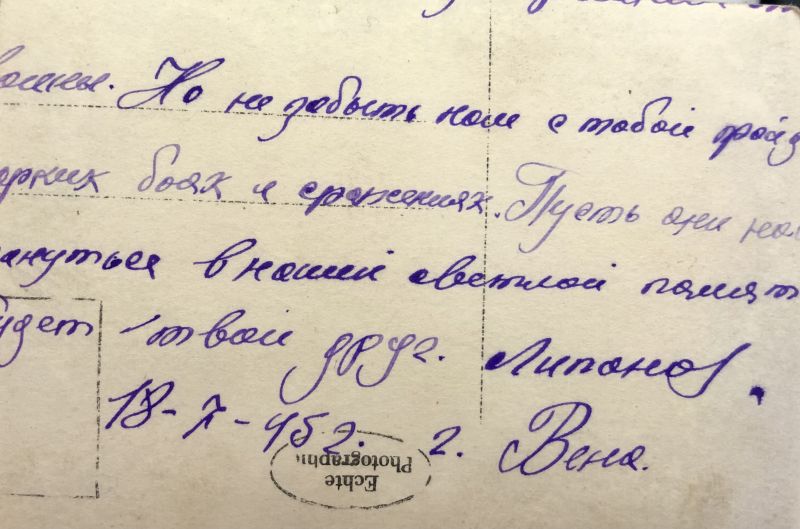 войны. Но не забыть нам с тобой
боях и сражениях. Пусть они нам
в нашей светлой памят
будет твой друг. Липанов.
18-X-45 г. г. Вена.
Echte
Photographi